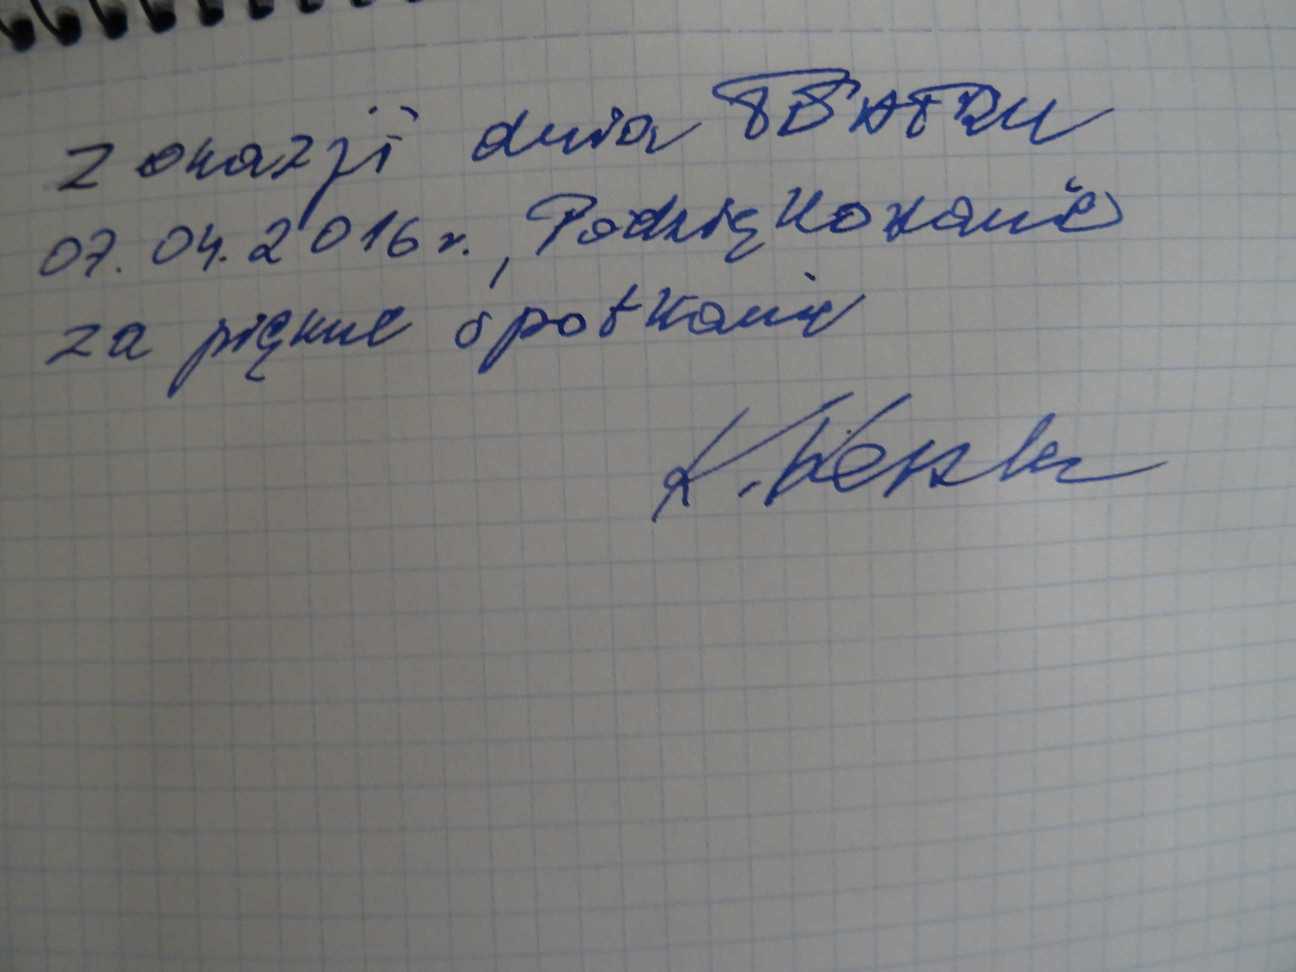 Z okazji dnia TEATRU
07.04.2016 r., Podziękowanie
za piękne spotkanie
K.